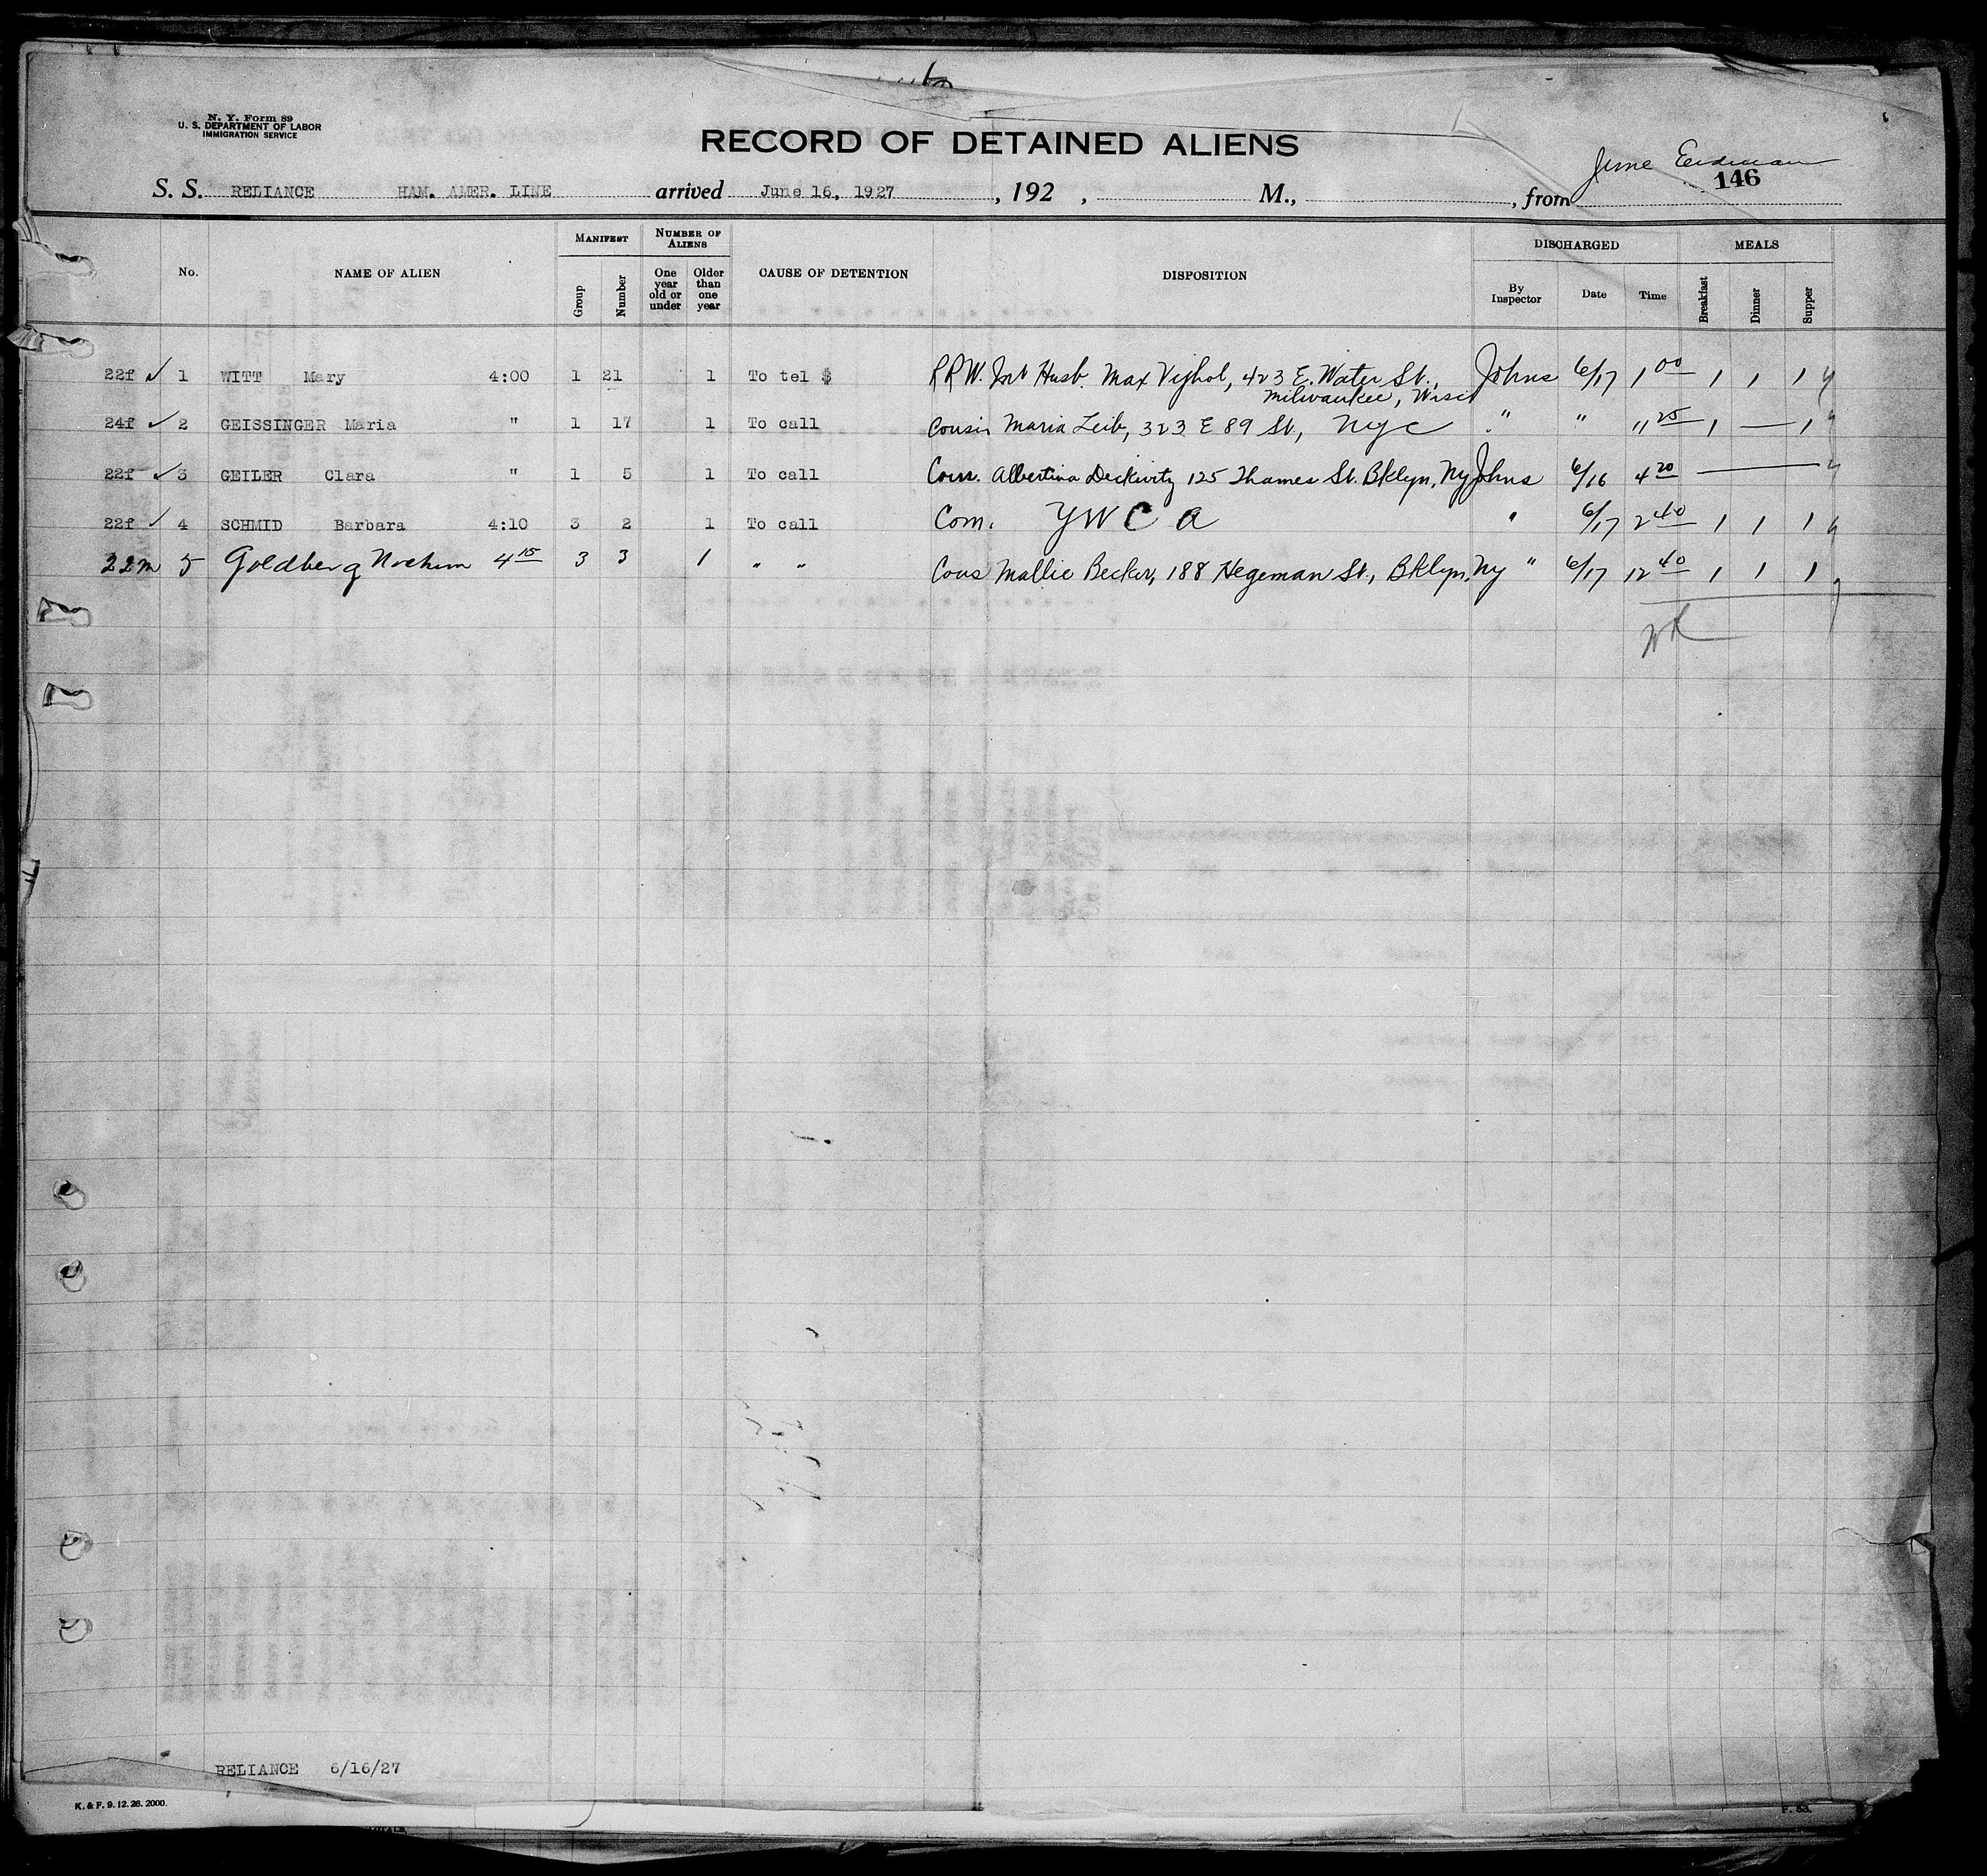 N. Y. Form 89
U. S. DEPARTMENT OF LABOR
IMMIGRATION SERVICE
RECORD OF DETAINED ALIENS
146
S. S. RELIANCE HAM. AMER. LINE arrived June 16, 1927, 192 , M., , from
MANIFEST NUMBER OF ALIENS DISCHARGED MEALS
No. NAME OF ALIEN Group Number One year old or under Older than one year CAUSE OF DETENTION DISPOSITION By Inspector Date Time Breakfast Dinner Supper
22f ✓ 1 WITT Mary 4:00 1 21 1 To tel $ RRW. Husb. Max 423 E. Water St., Johns 6/17 1 00 1 1 1
Milwaukee, Wisc
24f ✓ 2 GEISSINGER Maria " 1 17 1 To call Cousin Maria Leib, 323 E 89 St, NYC " " 11 25 1 — 1
22f ✓ 3 GEILER Clara " 1 5 1 To call Cous. Albertina 125 Thames St. Bklyn, NY Johns 6/16 4 20 —
22f ✓ 4 SCHMID Barbara 4:10 3 2 1 To call Com. YWCA " 6/17 2 40 1 1 1
22m 5 Goldberg Nochum 4 15 3 3 1 " " Cous Mallie Becker, 188 Hegeman St., Bklyn, NY " 6/17 12 40 1 1 1
RELIANCE 6/16/27
K. & F. 9. 12. 26. 2000.
F. 53.